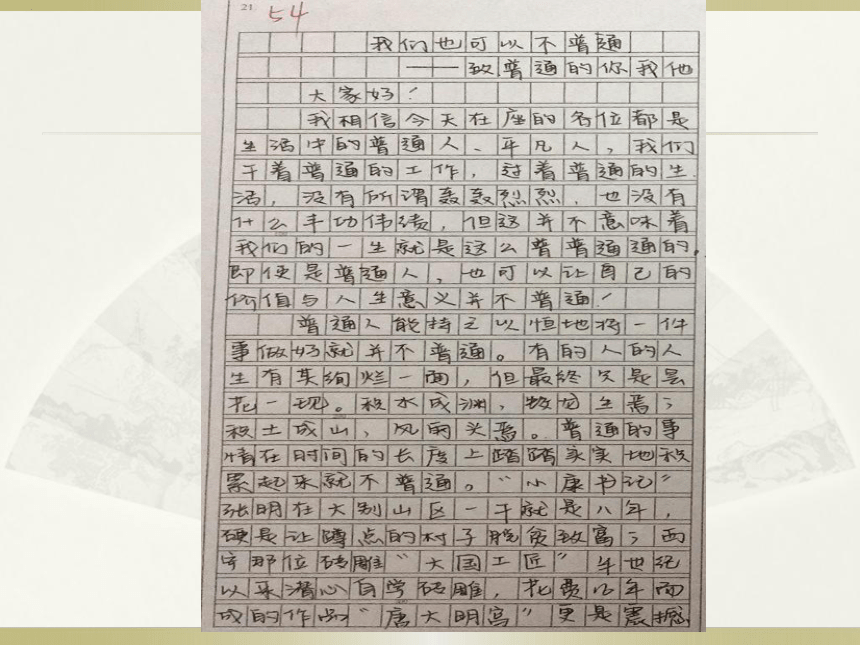 21.
54
我们也可以不普通
——致普通的你我他
大家好！
我相信今天在座的各位都是
生活中的普通人、平凡人，我们
干着普通的工作，过着普通的生
活，没有所谓轰轰烈烈，也没有
什么丰功伟绩，但这并不意味着
我们的一生就是这么普普通通的，
即使是普通人，也可以让自己的
价值与人生意义并不普通！
普通人能持之以恒地将一件
事做好就并不普通。有的人的人
生有某绚烂一面，但最终只是昙
花一现。积水成渊，蛟龙生焉；
积土成山，风雨头焉。普通的事
情在时间的长度上踏踏实实地积
累起来就不普通。“小康书记”
张明在大别山区一干就是八年，
硬是让蹲点的村子脱贫致富；而
那位砖雕“大国工匠”半世纪
以来潜心自学砖雕，花费 年而
成的作品“唐大明宫”更是震撼